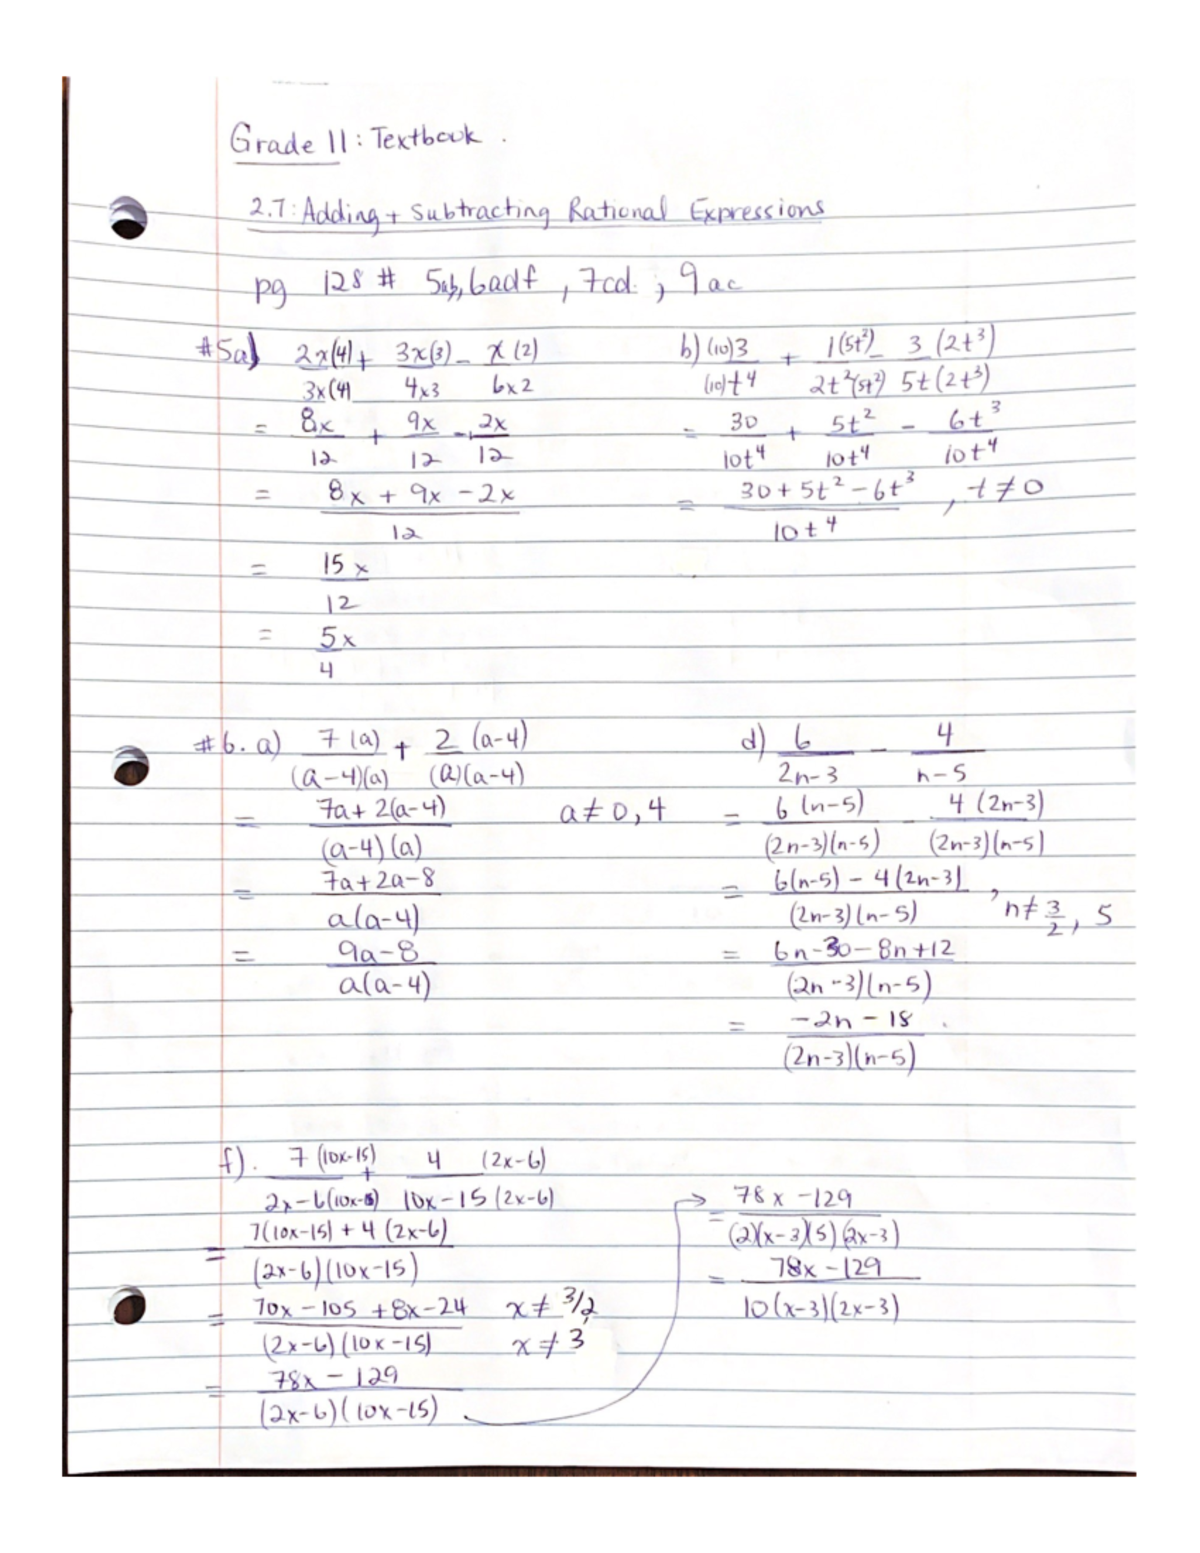 Grade 11: Textbook.
2.7: Adding + Subtracting Rational Expressions
pg 128 # 5ab, 6adf, 7cd; 9ac
#5a) 2x(4) + 3x(3) - x(2)
3x(4) 4x3 6x2
= 8x + 9x - 2x
12 12 12
= 8x + 9x - 2x
12
= 15x
12
= 5x
4
b) (10)3 + 1(5t²) - 3(2t³)
(10)t⁴ 2t²(5t²) 5t(2t³)
= 30 + 5t² - 6t³
10t⁴ 10t⁴ 10t⁴
= 30 + 5t² - 6t³, t ≠ 0
10t⁴
#6. a) 7(a) + 2(a-4)
(a-4)(a) (a)(a-4)
= 7a + 2(a-4) a ≠ 0, 4
(a-4)(a)
= 7a + 2a - 8
a(a-4)
= 9a - 8
a(a-4)
d) 6 - 4
2n-3 n-5
= 6(n-5) - 4(2n-3)
(2n-3)(n-5) (2n-3)(n-5)
= 6(n-5) - 4(2n-3), n ≠ 3/2, 5
(2n-3)(n-5)
= 6n - 30 - 8n + 12
(2n-3)(n-5)
= -2n - 18
(2n-3)(n-5)
f). 7(10x-15) + 4 (2x-6)
2x-6(10x-15) 10x-15(2x-6)
= 7(10x-15) + 4(2x-6)
(2x-6)(10x-15)
= 70x - 105 + 8x - 24 x ≠ 3/2,
(2x-6)(10x-15) x ≠ 3
= 78x - 129
(2x-6)(10x-15)
= 78x - 129
(2)(x-3)(5)(2x-3)
= 78x - 129
10(x-3)(2x-3)